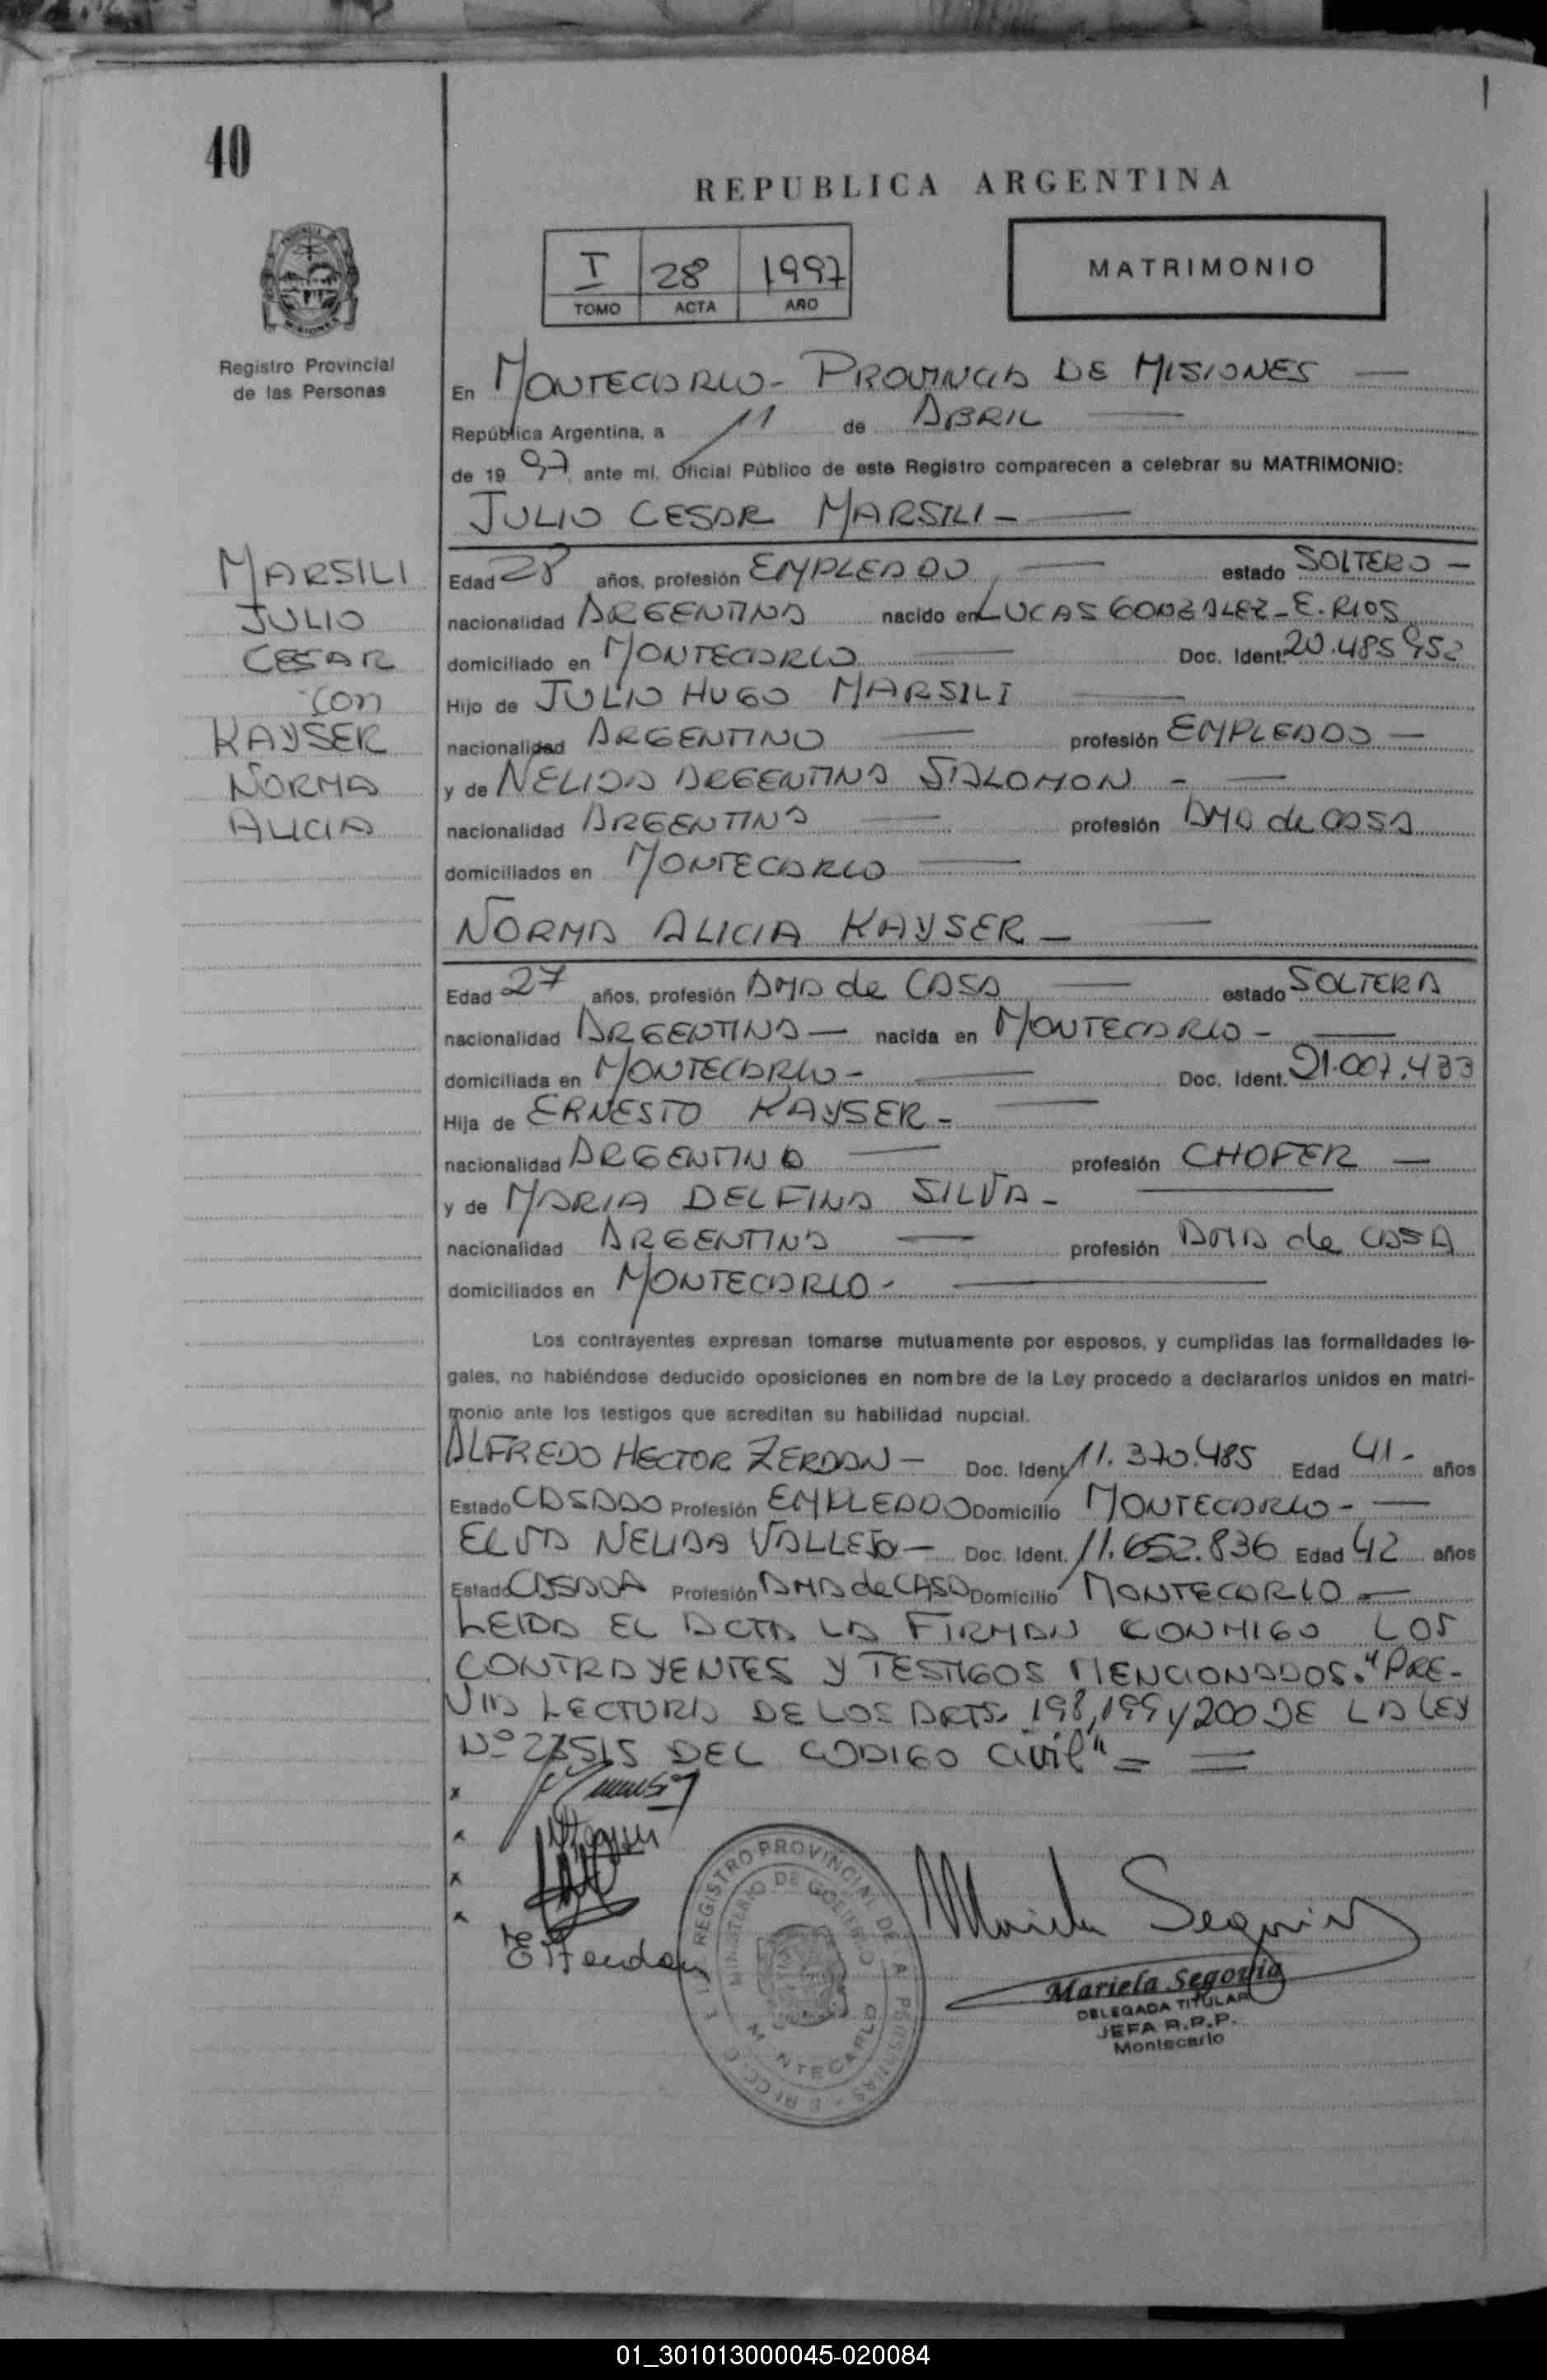 40
REPUBLICA ARGENTINA
I 28 1997
TOMO ACTA AÑO
MATRIMONIO
Registro Provincial
de las Personas
En MONTECARLO - PROVINCIA DE MISIONES
República Argentina, a 11 de ABRIL
de 1997, ante mí, Oficial Público de este Registro comparecen a celebrar su MATRIMONIO:
JULIO CESAR MARSILI -
MARSILI
JULIO
CESAR
con
KAYSER
NORMA
ALICIA
Edad 28 años, profesión EMPLEADO estado SOLTERO -
nacionalidad ARGENTINA nacido en LUCAS GONZALEZ - E. RIOS
domiciliado en MONTECARLO Doc. Ident. 20.485.952
Hijo de JULIO HUGO MARSILI
nacionalidad ARGENTINO profesión EMPLEADO -
y de NELIDA ARGENTINA SALOMON -
nacionalidad ARGENTINA profesión AMA de CASA
domiciliados en MONTECARLO
NORMA ALICIA KAYSER -
Edad 27 años, profesión AMA de CASA estado SOLTERA
nacionalidad ARGENTINA - nacida en MONTECARLO -
domiciliada en MONTECARLO - Doc. Ident. 21.007.433
Hija de ERNESTO KAYSER -
nacionalidad ARGENTINO profesión CHOFER -
y de MARIA DELFINA SILVA -
nacionalidad ARGENTINA profesión AMA de CASA
domiciliados en MONTECARLO -
Los contrayentes expresan tomarse mutuamente por esposos, y cumplidas las formalidades le-
gales, no habiéndose deducido oposiciones en nombre de la Ley procedo a declararlos unidos en matri-
monio ante los testigos que acreditan su habilidad nupcial.
ALFREDO HECTOR ZERDAN - Doc. Ident. 11.370.485 Edad 41 - años
Estado CASADO Profesión EMPLEADO Domicilio MONTECARLO -
ELVIA NELIDA VALLEJO - Doc. Ident. 11.652.836 Edad 42 años
Estado CASADA Profesión AMA de CASA Domicilio MONTECARLO -
LEIDA EL ACTA LA FIRMAN CONMIGO LOS
CONTRAYENTES Y TESTIGOS MENCIONADOS. "PRE-
VIA LECTURA DE LOS ARTS. 198, 199 y 200 DE LA LEY
Nº 23515 DEL CODIGO Civil" =
REGISTRO PROVINCIAL DE LA
MINISTERIO DE GOBIERNO
MONTECARLO
Mariela Segovia
Mariela Segovia
DELEGADA TITULAR
JEFA R.P.P.
Montecarlo
01_301013000045-020084